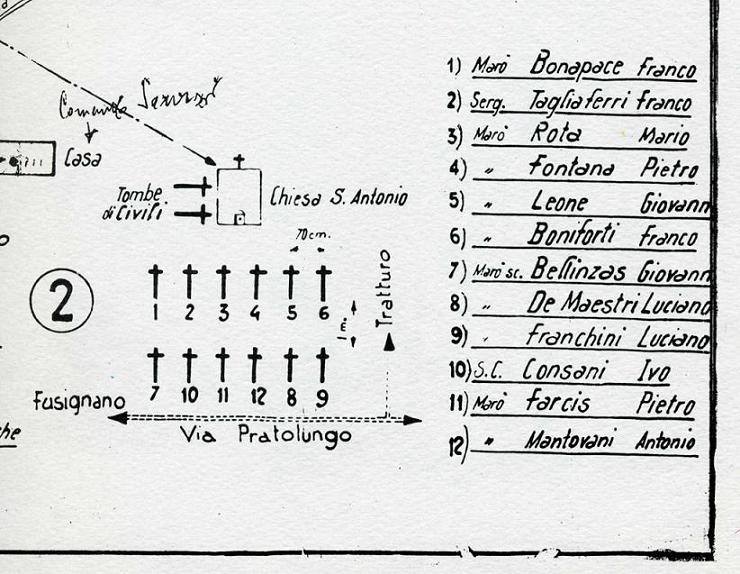 Comando Servizi
Casa
Tombe
di Civili
Chiesa S. Antonio
70cm.
1 2 3 4 5 6
Tratturo
2
7 10 11 12 8 9
Fusignano
Via Pratolungo
che
1) Marò Bonapace Franco
2) Serg. Tagliaferri Franco
3) Marò Rota Mario
4) " Fontana Pietro
5) " Leone Giovann
6) " Boniforti Franco
7) Marò sc. Bellinzas Giovann
8) " De Maestri Luciano
9) " Franchini Luciano
10) S.C. Consani Ivo
11) Marò Farcis Pietro
12) " Mantovani Antonio